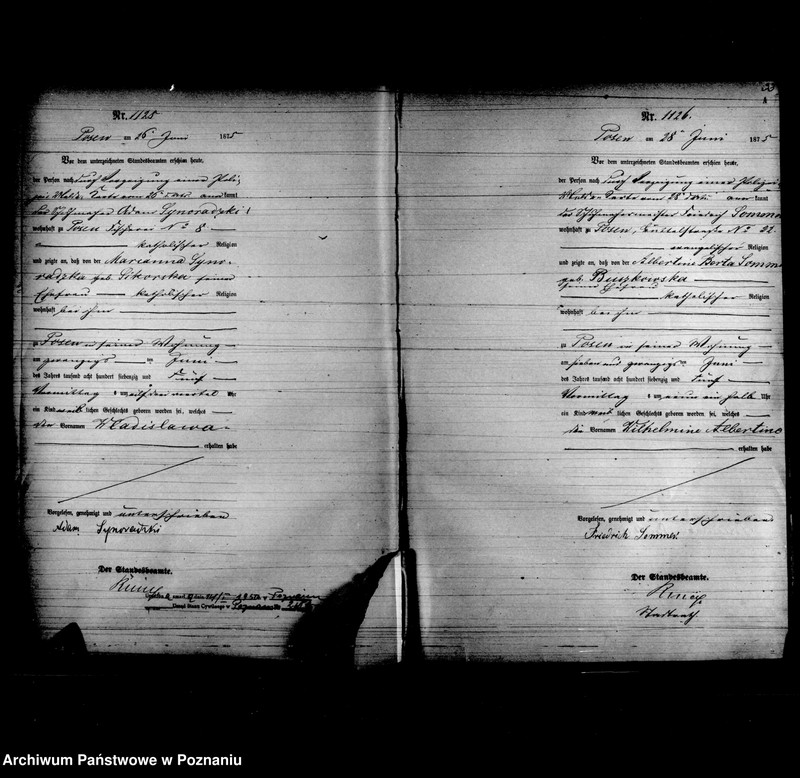 Nr. 1125
Posen am 26 Juni 1875
Vor dem unterzeichneten Standesbeamten erschien heute,
der Person nach durch Vorzeigung einer Polizei
Melde Karte vom 26 d Mts anerkannt
der Adam Synoradzki
wohnhaft zu Posen Fischerei No 8
katholischer Religion
und zeigte an, daß von der Marianna Syno-
radzka geb. Sikorska seine
Ehefrau katholischer Religion
wohnhaft bei ihm
zu Posen in seiner Wohnung
am zwanzigs Juni
des Jahres tausend acht hundert siebenzig und fünf
Vormittag um drei viertel Uhr
ein Kind weiblichen Geschlechts geboren worden sei, welches
Vornamen Wladislawa
erhalten habe
Vorgelesen, genehmigt und unterschrieben
Adam Synoradzki
Der Standesbeamte.
Urząd Stanu Cywilnego w
Nr. 1126.
Posen am 28 Juni 1875
Vor dem unterzeichneten Standesbeamten erschien heute,
der Person nach durch Vorzeigung einer Polizei
Melde Karte vom 28 d Mts anerkannt
der Friedrich Sommer
wohnhaft zu Posen, Büttelstraße No 22
evangelischer Religion
und zeigte an, daß von der Albertine Berta Sommer
geb. Buszkowska
seine Ehefrau
katholischer Religion
wohnhaft bei ihm
zu Posen in seiner Wohnung
am sieben und zwanzigs Juni
des Jahres tausend acht hundert siebenzig und fünf
Vormittag um neun ein halb Uhr
ein Kind weiblichen Geschlechts geboren worden sei, welches
die Vornamen Wilhelmine Albertine
erhalten habe
Vorgelesen, genehmigt und unterschrieben
Friedrich Sommer
Der Standesbeamte.
Stadtrath.
Archiwum Państwowe w Poznaniu